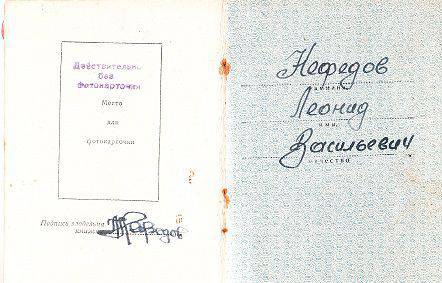 Действительно
без
фотокарточки
Место
для
фотокарточки
Подпись владельца
книжки
Нефедов
фамилия
Леонид
имя
Васильевич
отчество